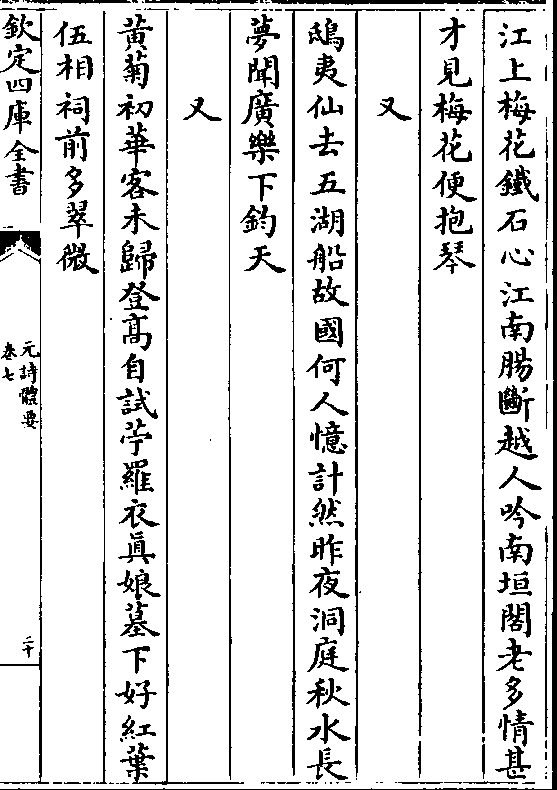 江上梅花鐵石心江南腸斷越人吟南垣閣老多情甚
才見梅花便抱琴
又
鴟夷仙去五湖船故國何人憶計然昨夜洞庭秋水長
夢聞廣樂下鈞天
又
黃菊初華客未歸登髙自試苧羅衣真娘墓下好紅葉
伍相祠前多翠微
欽定四庫全書
元詩體要
卷七
二十